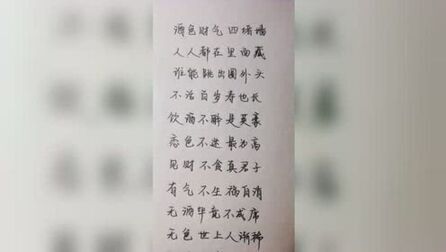 酒色财气四堵墙
人人都在里面藏
谁能跳出圈外头
不活百岁寿也长
饮酒不醉是英豪
恋色不迷最为高
见财不贪真君子
有气不生福自消
无酒毕竟不成席
无色世上人渐稀